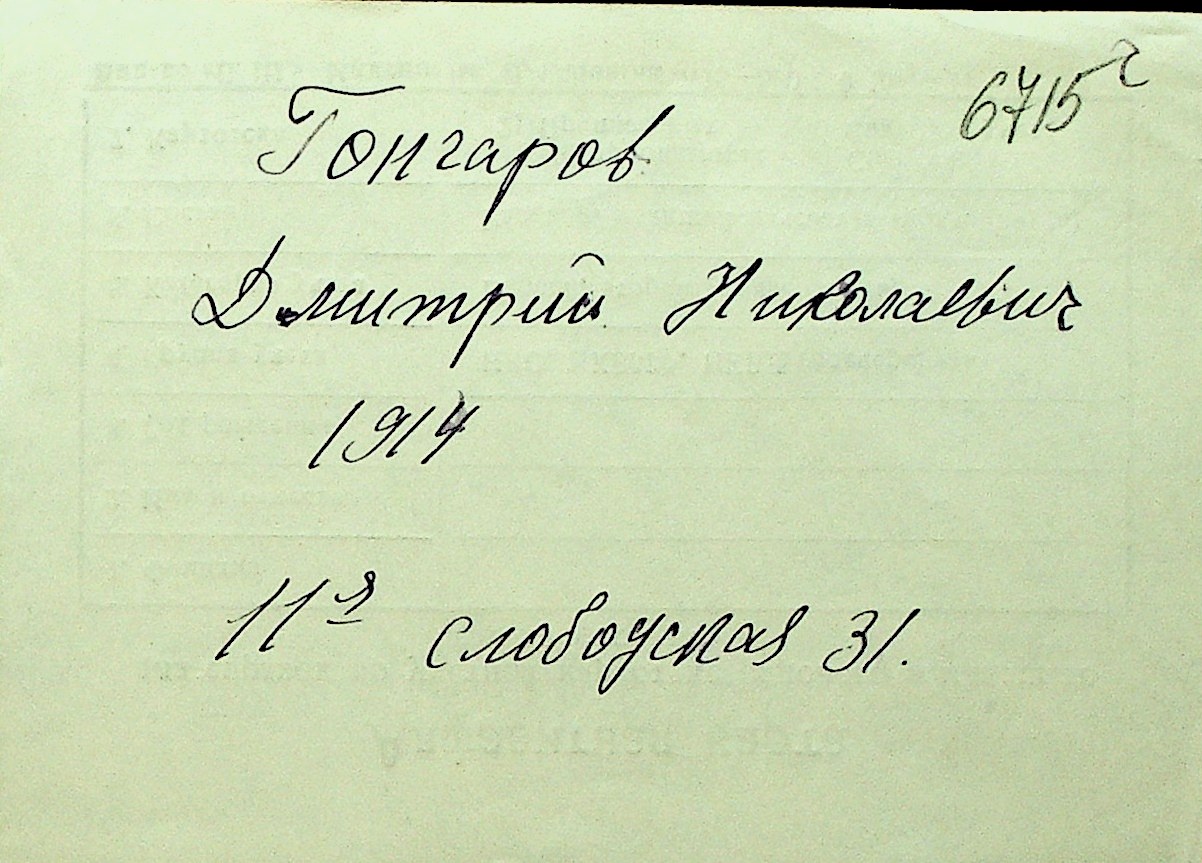 6715 г
Гончаров
Дмитрий Николаевич
1914
11я слободская 31.